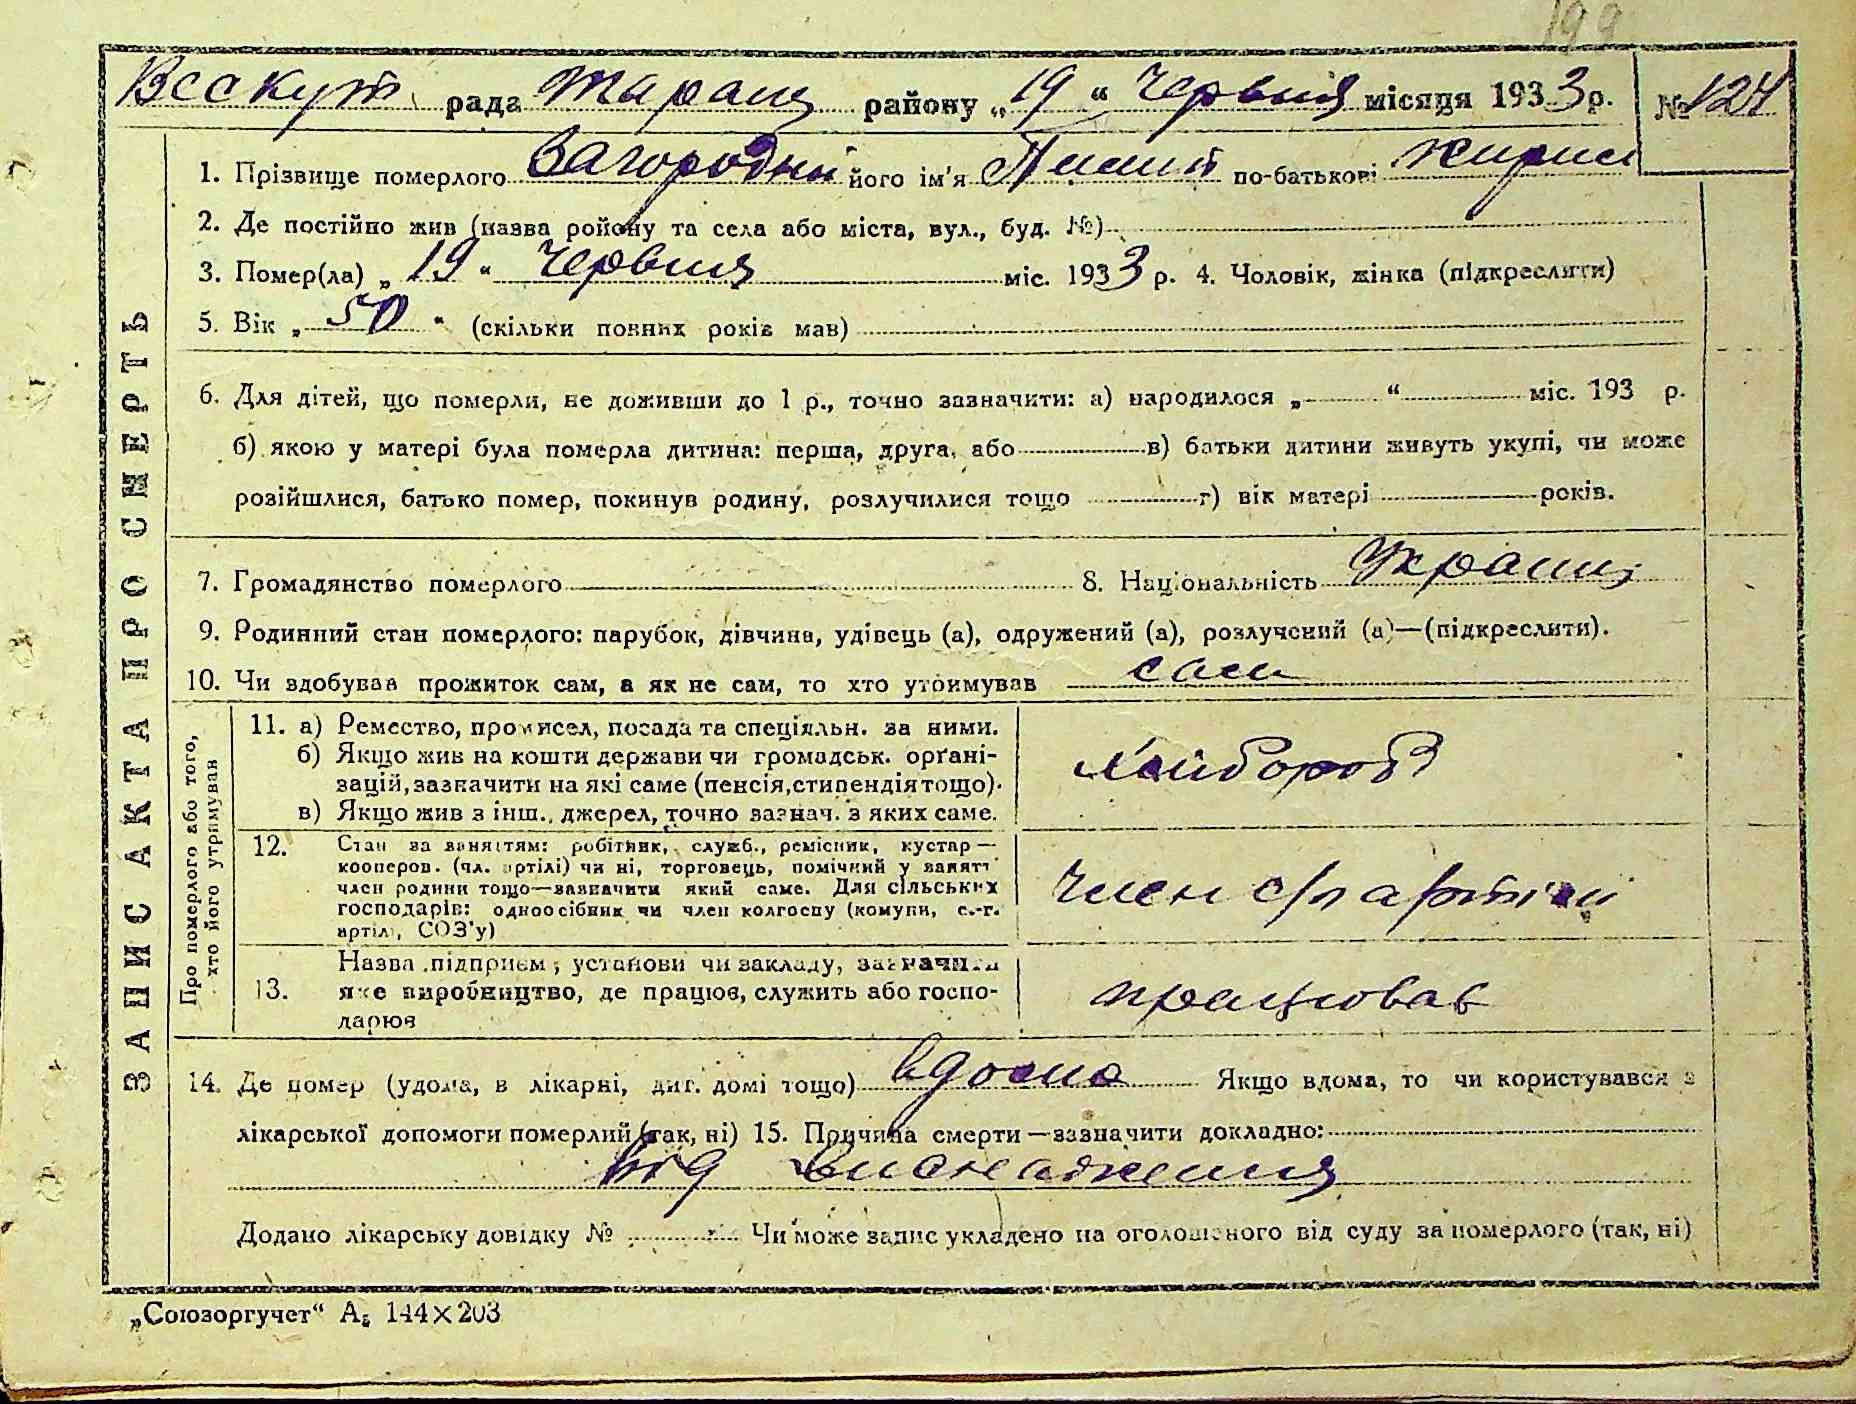 199
Вескут рада Таращ району „19“ Червня місяця 1933 р. № 124
1. Прізвище померлого Загородній його ім'я Пилип по-батькові Кирил
2. Де постійно жив (назва ройону та села або міста, вул., буд. №)
3. Помер(ла) „19“ Червня міс. 1933 р. 4. Чоловік, жінка (підкреслити)
5. Вік „50“ (скільки повних років мав)
6. Для дітей, що померли, не доживши до 1 р., точно зазначити: а) народилося „ “ міс. 193 р.
б) якою у матері була померла дитина: перша, друга, або в) батьки дитини живуть укупі, чи може
розійшлися, батько помер, покинув родину, розлучилися тощо г) вік матері років.
7. Громадянство померлого 8. Національність Україн
9. Родинний стан померлого: парубок, дівчина, удівець (а), одружений (а), розлучений (а)—(підкреслити).
10. Чи здобував прожиток сам, а як не сам, то хто утримував сам
ЗАПИС АКТА ПРО СМЕРТЬ
Про померлого або того,
хто його утримував
11. а) Ремество, промисел, посада та спеціяльн. за ними.
б) Якщо жив на кошти держави чи громадськ. орґані-
зацій, зазначити на які саме (пенсія, стипендія тощо).
в) Якщо жив з інш., джерел, точно зазнач. з яких саме.
хлібороб
12. Стан за заняттям: робітник, служб., ремісник, кустар—
кооперов. (чл. артілі) чи ні, торговець, помічний у занятт
член родини тощо—зазначити який саме. Для сільських
господарів: одноосібник чи член колгоспу (комуни, с.-г.
артілі, СОЗ'у)
член с/г артілі
13. Назва підприєм., установи чи закладу, зазначити
яке виробництво, де працює, служить або госпо-
дарює
працював
14. Де помер (удома, в лікарні, дит. домі тощо) вдома Якщо вдома, то чи користувався з
лікарської допомоги померлий (так, ні) 15. Причина смерти—зазначити докладно:
від виснаження
Додано лікарську довідку № Чи може запис укладено на оголошеного від суду за померлого (так, ні)
„Союзоргучет“ А5 144×203